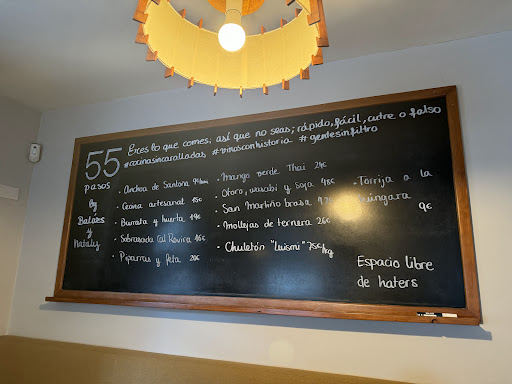 55
pasos
By
Balares
y
Nataly
Eres lo que comes, así que no seas; rápido, fácil, cutre o falso
#cocinasincaralladas #vinosconhistoria #gentesinfiltro
· Anchoa de Santoña
· Cecina artesanal 15€
· Burrata y huerta 14€
· Sobrasada Cal Rovira 16€
· Piparras y feta 20€
· Mango verde Thai 24€
· Otoro, wasabi y soja 48€
· San Martiño brasa
· Mollejas de ternera 26€
· Chuletón "Luismi" 75€/kg
· Torrija a la
9€
Espacio libre
de haters